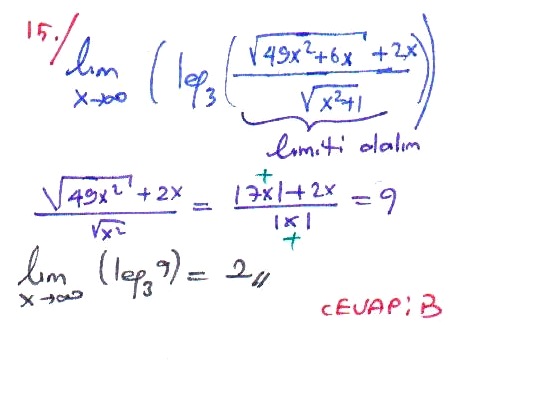 15./ lim x→∞ (log₃(√(49x²+6x) + 2x / √(x²+1)))
limiti alalım
√(49x²) + 2x / √(x²) = |7x| + 2x / |x| = 9
+
+
lim x→∞ (log₃ 9) = 2 //
CEVAP: B